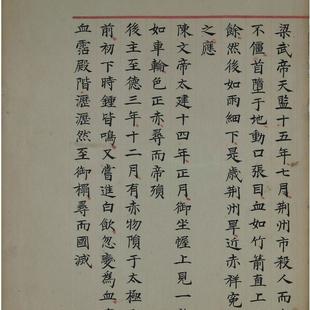 梁武帝天監十五年七月荆州市殺人而
不僵首墮于地動口張目血如竹箭直上
餘然後如雨細下是歲荆州旱近赤祥寃
之應
陳文帝太建十四年正月御坐幄上見一
如車輪色正赤尋而帝殞
後主至德三年十二月有赤物隕于太極
前初下時鍾皆鳴又嘗進白飲忽變爲血
血霑殿階瀝瀝然至御榻尋而國滅